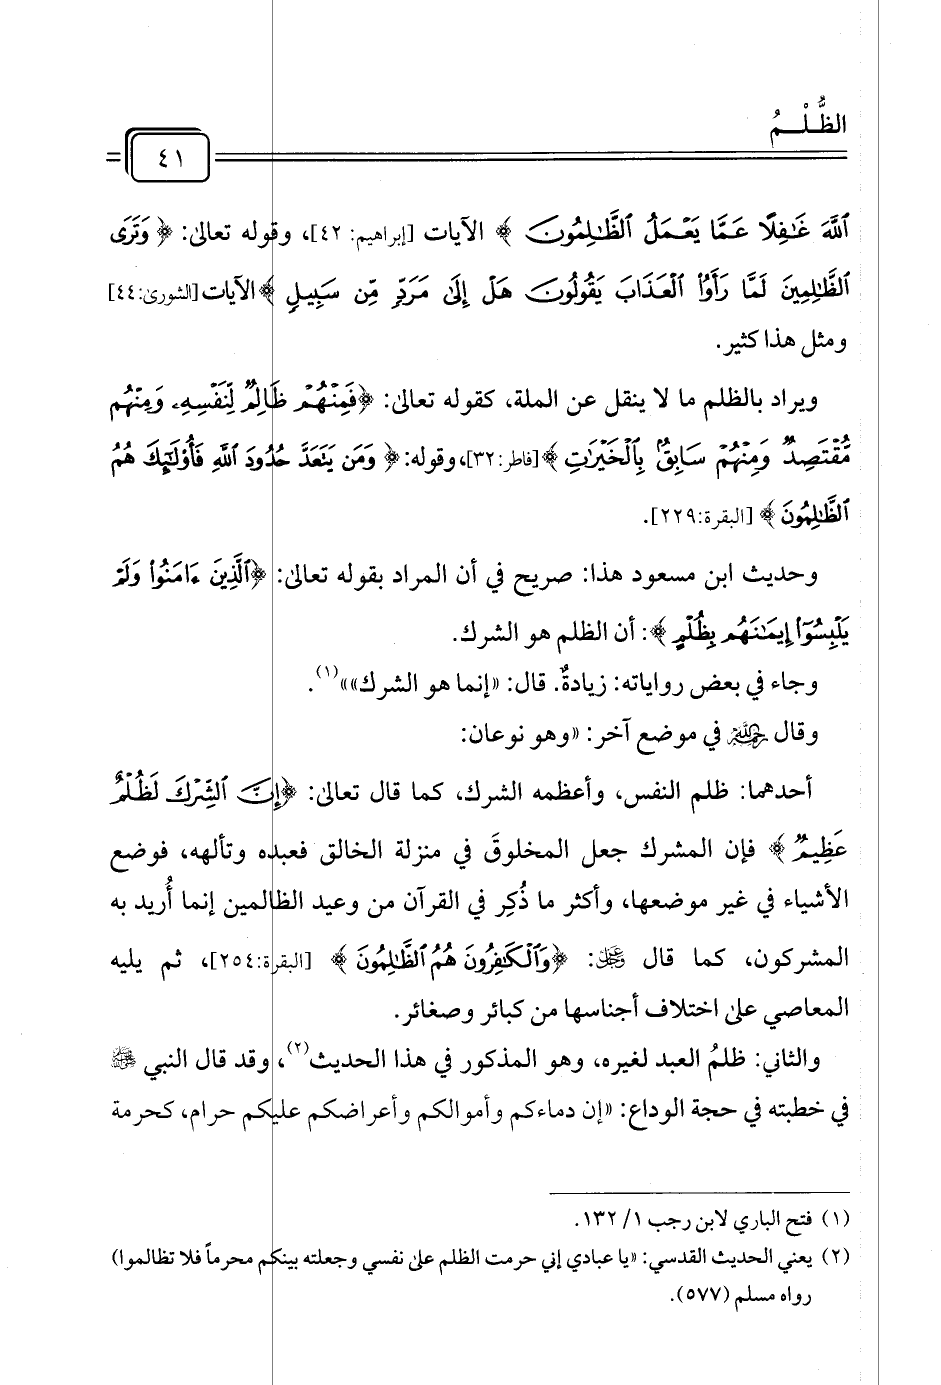 الظُّلْـــمُ
٤١
ٱللَّهَ غَٰفِلًا عَمَّا يَعْمَلُ ٱلظَّٰلِمُونَ ﴾ الآيات [إبراهيم: ٤٢]، وقوله تعالىٰ: ﴿ وَتَرَى
ٱلظَّٰلِمِينَ لَمَّا رَأَوُا۟ ٱلْعَذَابَ يَقُولُونَ هَلْ إِلَىٰ مَرَدٍّ مِّن سَبِيلٍ ﴾ الآيات [الشورىٰ:٤٤]
ومثل هذا كثير.
ويراد بالظلم ما لا ينقل عن الملة، كقوله تعالىٰ: ﴿فَمِنْهُمْ ظَالِمٌ لِّنَفْسِهِۦ وَمِنْهُم
مُّقْتَصِدٌ وَمِنْهُمْ سَابِقٌۢ بِٱلْخَيْرَٰتِ ﴾ [فاطر:٣٢]، وقوله: ﴿ وَمَن يَتَعَدَّ حُدُودَ ٱللَّهِ فَأُو۟لَٰٓئِكَ هُمُ
ٱلظَّٰلِمُونَ ﴾ [البقرة:٢٢٩].
وحديث ابن مسعود هذا: صريح في أن المراد بقوله تعالىٰ: ﴿ٱلَّذِينَ ءَامَنُوا۟ وَلَمْ
يَلْبِسُوٓا۟ إِيمَٰنَهُم بِظُلْمٍ ﴾: أن الظلم هو الشرك.
وجاء في بعض رواياته: زيادةٌ. قال: «إنما هو الشرك»»(١).
وقال رحمه الله في موضع آخر: «وهو نوعان:
أحدهما: ظلم النفس، وأعظمه الشرك، كما قال تعالىٰ: ﴿إِنَّ ٱلشِّرْكَ لَظُلْمٌ
عَظِيمٌ ﴾ فإن المشرك جعل المخلوقَ في منزلة الخالق فعبده وتألهه، فوضع
الأشياء في غير موضعها، وأكثر ما ذُكِر في القرآن من وعيد الظالمين إنما أُريد به
المشركون، كما قال عز وجل: ﴿وَٱلْكَٰفِرُونَ هُمُ ٱلظَّٰلِمُونَ ﴾ [البقرة:٢٥٤]، ثم يليه
المعاصي علىٰ اختلاف أجناسها من كبائر وصغائر.
والثاني: ظلمُ العبد لغيره، وهو المذكور في هذا الحديث(٢)، وقد قال النبي ﷺ
في خطبته في حجة الوداع: «إن دماءكم وأموالكم وأعراضكم عليكم حرام، كحرمة
(١) فتح الباري لابن رجب ١/ ١٣٢.
(٢) يعني الحديث القدسي: «يا عبادي إني حرمت الظلم علىٰ نفسي وجعلته بينكم محرماً فلا تظالموا)
رواه مسلم (٥٧٧).